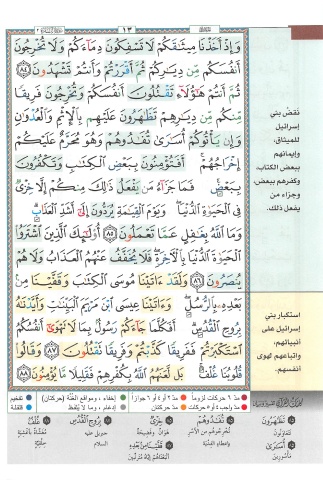 ١٣
وَإِذْ أَخَذْنَا مِيثَٰقَكُمْ لَا تَسْفِكُونَ دِمَآءَكُمْ وَلَا تُخْرِجُونَ
أَنفُسَكُم مِّن دِيَٰرِكُمْ ثُمَّ أَقْرَرْتُمْ وَأَنتُمْ تَشْهَدُونَ ٨٤
ثُمَّ أَنتُمْ هَٰٓؤُلَآءِ تَقْتُلُونَ أَنفُسَكُمْ وَتُخْرِجُونَ فَرِيقًا
مِّنكُم مِّن دِيَٰرِهِمْ تَظَٰهَرُونَ عَلَيْهِم بِٱلْإِثْمِ وَٱلْعُدْوَٰنِ
وَإِن يَأْتُوكُمْ أُسَٰرَىٰ تُفَٰدُوهُمْ وَهُوَ مُحَرَّمٌ عَلَيْكُمْ
إِخْرَاجُهُمْ أَفَتُؤْمِنُونَ بِبَعْضِ ٱلْكِتَٰبِ وَتَكْفُرُونَ
بِبَعْضٍ فَمَا جَزَآءُ مَن يَفْعَلُ ذَٰلِكَ مِنكُمْ إِلَّا خِزْىٌ
فِى ٱلْحَيَوٰةِ ٱلدُّنْيَا وَيَوْمَ ٱلْقِيَٰمَةِ يُرَدُّونَ إِلَىٰٓ أَشَدِّ ٱلْعَذَابِ
وَمَا ٱللَّهُ بِغَٰفِلٍ عَمَّا تَعْمَلُونَ ٨٥ أُو۟لَٰٓئِكَ ٱلَّذِينَ ٱشْتَرَوُا۟
ٱلْحَيَوٰةَ ٱلدُّنْيَا بِٱلْءَاخِرَةِ فَلَا يُخَفَّفُ عَنْهُمُ ٱلْعَذَابُ وَلَا هُمْ
يُنصَرُونَ ٨٦ وَلَقَدْ ءَاتَيْنَا مُوسَى ٱلْكِتَٰبَ وَقَفَّيْنَا مِنۢ
بَعْدِهِۦ بِٱلرُّسُلِ وَءَاتَيْنَا عِيسَى ٱبْنَ مَرْيَمَ ٱلْبَيِّنَٰتِ وَأَيَّدْنَٰهُ
بِرُوحِ ٱلْقُدُسِ أَفَكُلَّمَا جَآءَكُمْ رَسُولٌۢ بِمَا لَا تَهْوَىٰٓ أَنفُسُكُمُ
ٱسْتَكْبَرْتُمْ فَفَرِيقًا كَذَّبْتُمْ وَفَرِيقًا تَقْتُلُونَ ٨٧ وَقَالُوا۟
قُلُوبُنَا غُلْفٌۢ بَل لَّعَنَهُمُ ٱللَّهُ بِكُفْرِهِمْ فَقَلِيلًا مَّا يُؤْمِنُونَ ٨٨
نقض بني
إسرائيل
للميثاق،
وإيمانهم
ببعض الكتاب،
وكفرهم ببعض،
وجزاء من
يفعل ذلك.
استكبار بني
إسرائيل على
أنبيائهم،
واتباعهم لهوى
أنفسهم.
مد ٦ حركات لزوما
مد ٢ أو ٤ أو ٦ جوازا
إخفاء، ومواقع الغنة (حركتان)
تفخيم
مد واجب ٤ أو ٥ حركات
مد حركتان
إدغام، وما لا يلفظ
قلقلة
تَظَٰهَرُونَ
تُفَٰدُوهُمْ
خِزْىٌ
بِرُوحِ ٱلْقُدُسِ
غُلْفٌ
تتعاونون
هوان وفضيحة
جبريل عليه
السلام
أُسَٰرَىٰ
مأسورين